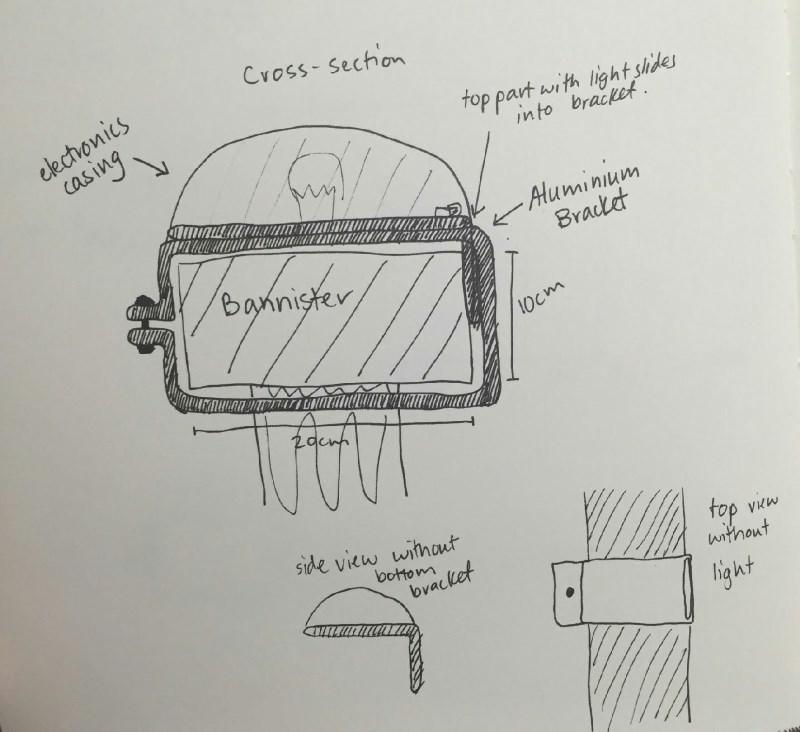 Cross-section
top part with light slides
into bracket.
electronics
casing
Aluminium
Bracket
Bannister
10cm
20cm
side view without
bottom
bracket
top view
without
light